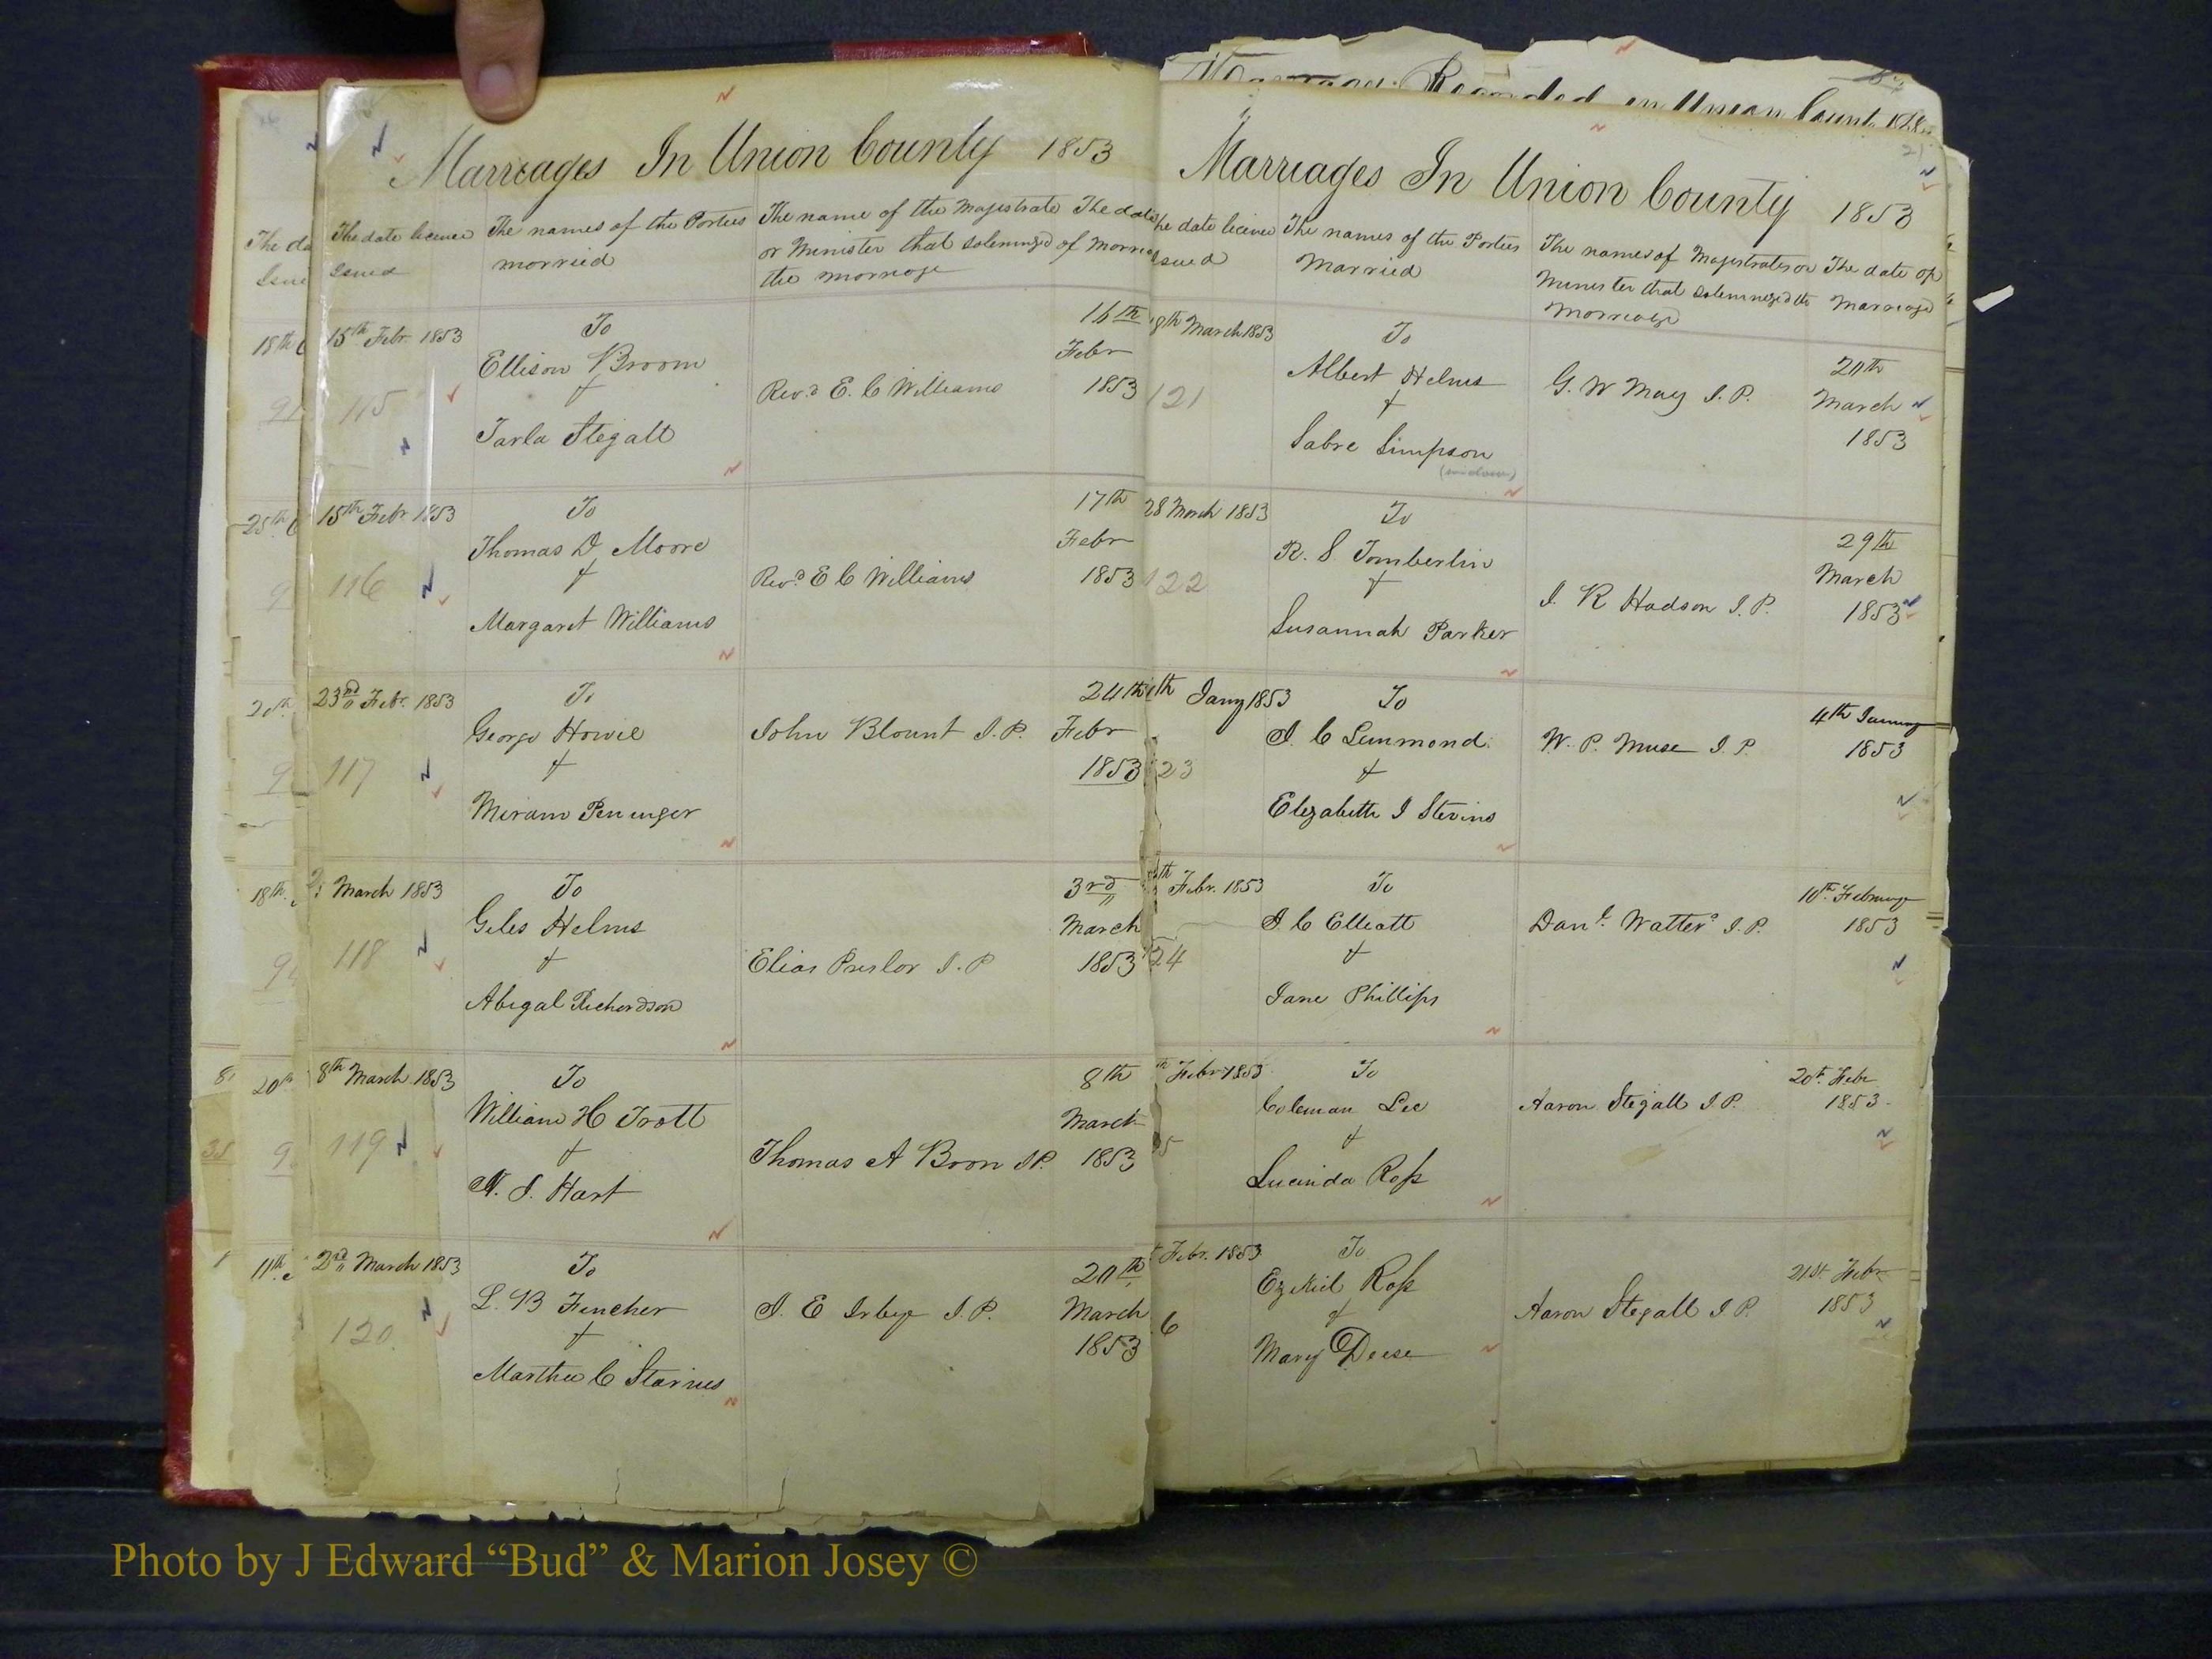 Marriages In Union County 1853
The date licence issued
The names of the Parties married
The name of the Majestrate or Minister that solemnized the marriage
The date of marriage
15th Febr. 1853
115
To
Ellison Broom
+
Tarla Stegall
Rev.d E. C Williams
16th
Febr
1853
15th Febr 1853
116
To
Thomas D Moore
+
Margaret Williams
Rev.d E C Williams
17th
Febr
1853
23rd Febr. 1853
117
To
George Howie
+
Miram
John Blount J. P.
24th
Febr
1853
March 1853
118
To
Giles Helms
+
Abigal Richardson
Elias Preslor J. P
3rd
March
1853
8th March 1853
119
To
William H Trott
+
N. J. Hart
Thomas A Boon J P.
8th
March
1853
2nd March 1853
120
To
L. B Fincher
+
Martha C Starnes
J. E Irbye J. P.
20th
March
1853
Recorded in Union
Marriages In Union County 1853
he date licence
The names of the Parties Married
The names of Majestrates or Minister that solemnized the Marriage
The date of Marriage
8th March 1853
121
To
Albert Helms
+
Sabre Simpson
(widow)
G. W May J. P.
20th
March
1853
28 March 1853
122
To
R. S Tomberlin
+
Susannah Parker
J. R Hudson J. P.
29th
March
1853
th Jany 1853
23
To
J. C Lemmond
+
Elezabeth J Stevins
W. P. Muse J P.
4th January
1853
th Febr. 1853
24
To
J C Elleott
+
Jane Phillips
Danl. Watters J. P.
10th February
1853
Febr 1853
5
To
Coleman Lee
+
Lucinda Ross
Aaron Stegall J P.
20th Febr
1853
Febr. 1853
6
To
Ezekiel Ross
+
Mary Deese
Aaron Stegall J P.
21st Febr
1853
Photo by J Edward “Bud” & Marion Josey ©